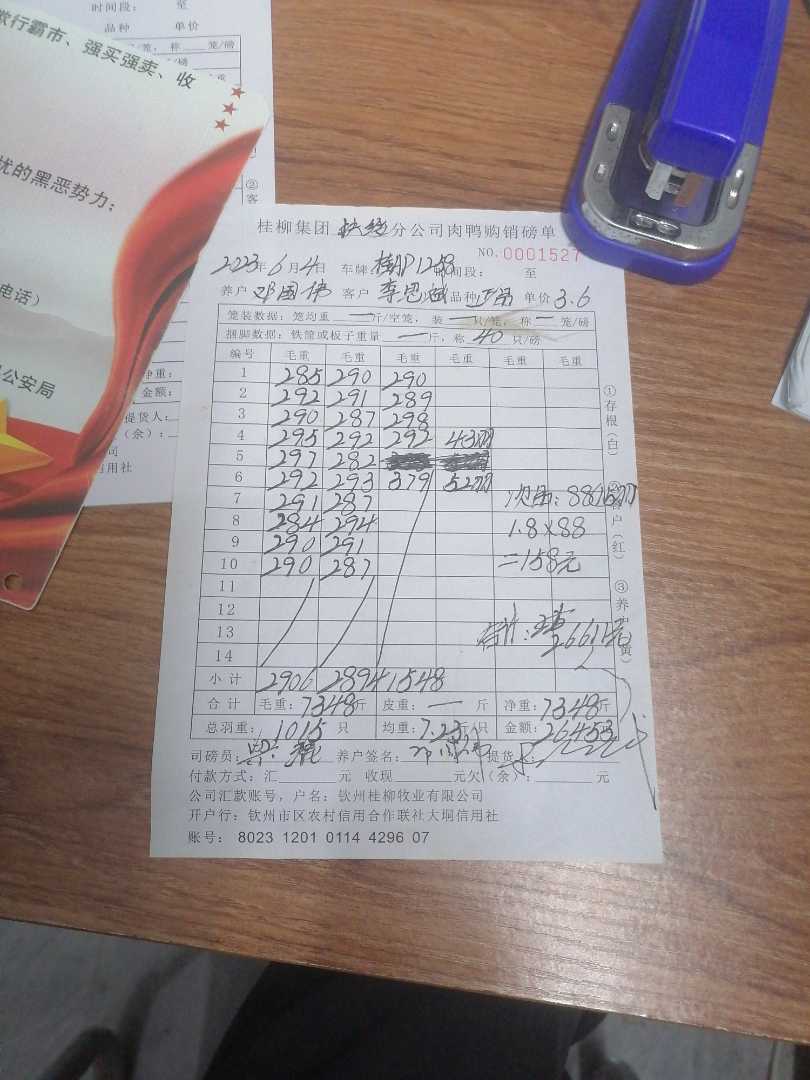 时间段： 至
品种 单价
欺行霸市、强买强卖、收
扰的黑恶势力；
电话）
公安局
净重：
金额：
提货人：
（余）：
司
信用社
② 客
桂柳集团 分公司肉鸭购销磅单
NO. 0001527
2023年6月4日 车牌 桂AP1258 时间段： 至
养户 邓国伟 客户 李思 品种 单价 3.6
笼装数据：笼均重 — 斤/空笼，装 — 只/笼，称 — 笼/磅
捆脚数据：铁筐或板子重量 — 斤，称 40 只/磅
编号 毛重 毛重 毛重 毛重 毛重 毛重
1 285 290 290
2 292 291 289
3 290 287 298
4 295 292 292 43只
5 297 282
6 292 293 379 52只
7 291 287
8 284 294
9 290 291
10 290 287
11
12
13
14
次鸭：88只
1.8×88
=158元
合计： 26611元
小计 2906 2894 1548
合计 毛重：7348斤 皮重：— 斤 净重：7348斤
总羽重：1015 只 均重：7.23斤/只 金额：26453元
司磅员： 养户签名： 提货人：
付款方式：汇 元 收现 元欠（余）： 元
公司汇款账号，户名：钦州桂柳牧业有限公司
开户行：钦州市区农村信用合作联社大垌信用社
账号： 8023 1201 0114 4296 07
① 存根（白）
② 客户（红）
③ 养户（黄）